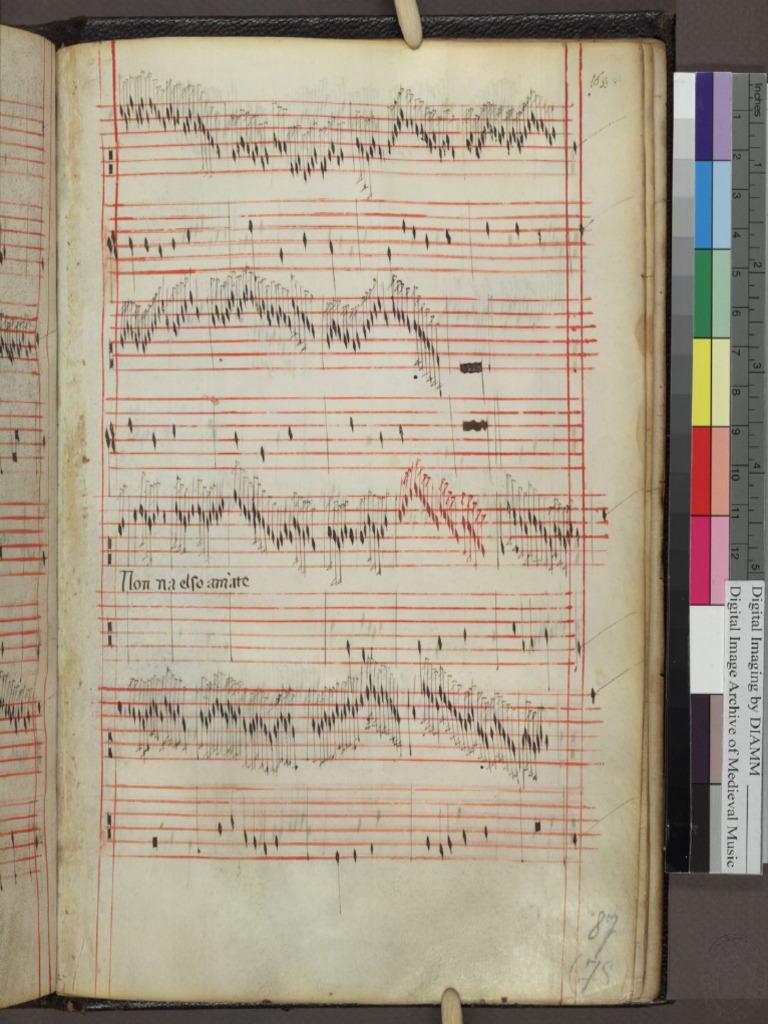 Non na elso amate
87
(75
inches
1
2
3
4
5
6
7
8
9
10
11
12
1
2
3
4
5
Digital Imaging by DIAMM
Digital Image Archive of Medieval Music